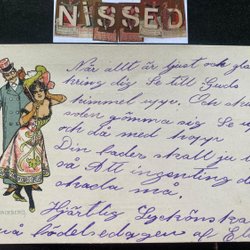 NISSED
När allt är ljust och gla
kring dig Se till Guds
himmel upp. Och
sten gömma sig Se u
och då med hopp
Din fader skall ju s
så Att ingenting d
skada må.
Hjärtlig Lyckönska
på födelsedagen af E